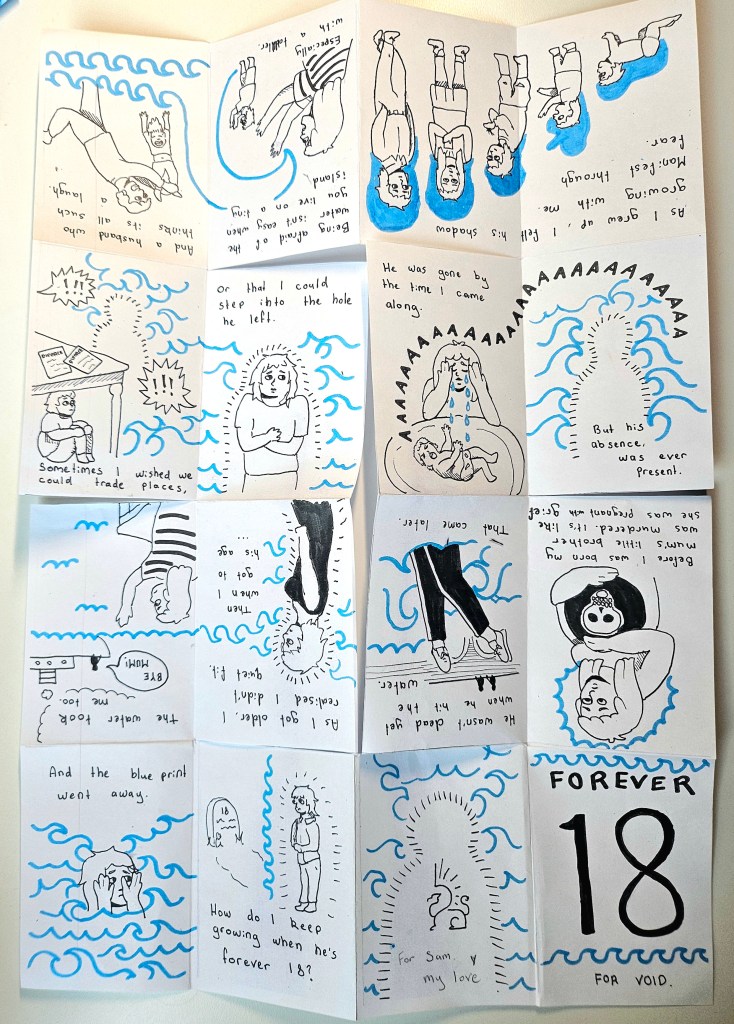 As I grew up, I felt his shadow
growing with me.
Manifest through
fear.
Being afraid of the
water isn't easy when
you live on a tiny
island
Especially
with a toddler.
And a husband who
thinks its all such
a laugh.
!!!
DIVORCE
!!!
Sometimes I wished we
could trade places,
or that I could
step into the hole
he left.
He was gone by
the time I came
along.
AAAAAAAAAAAAAAAAAAAAAAAAAA
But his
absence,
was ever
present.
Before I was born my
mum's little brother
was murdered. It's like
she was pregnant with grief
He wasn't dead yet
when he hit the
water.
That came later.
As I got older, I
realised I didn't
quiet fit.
Then
when I
got to
his age
...
The water took
me too.
BYE
MUM!
And the blue print
went away.
18
How do I keep
growing when he's
forever 18?
For Sam. ♥
my love
FOREVER
18
FOR VOID.